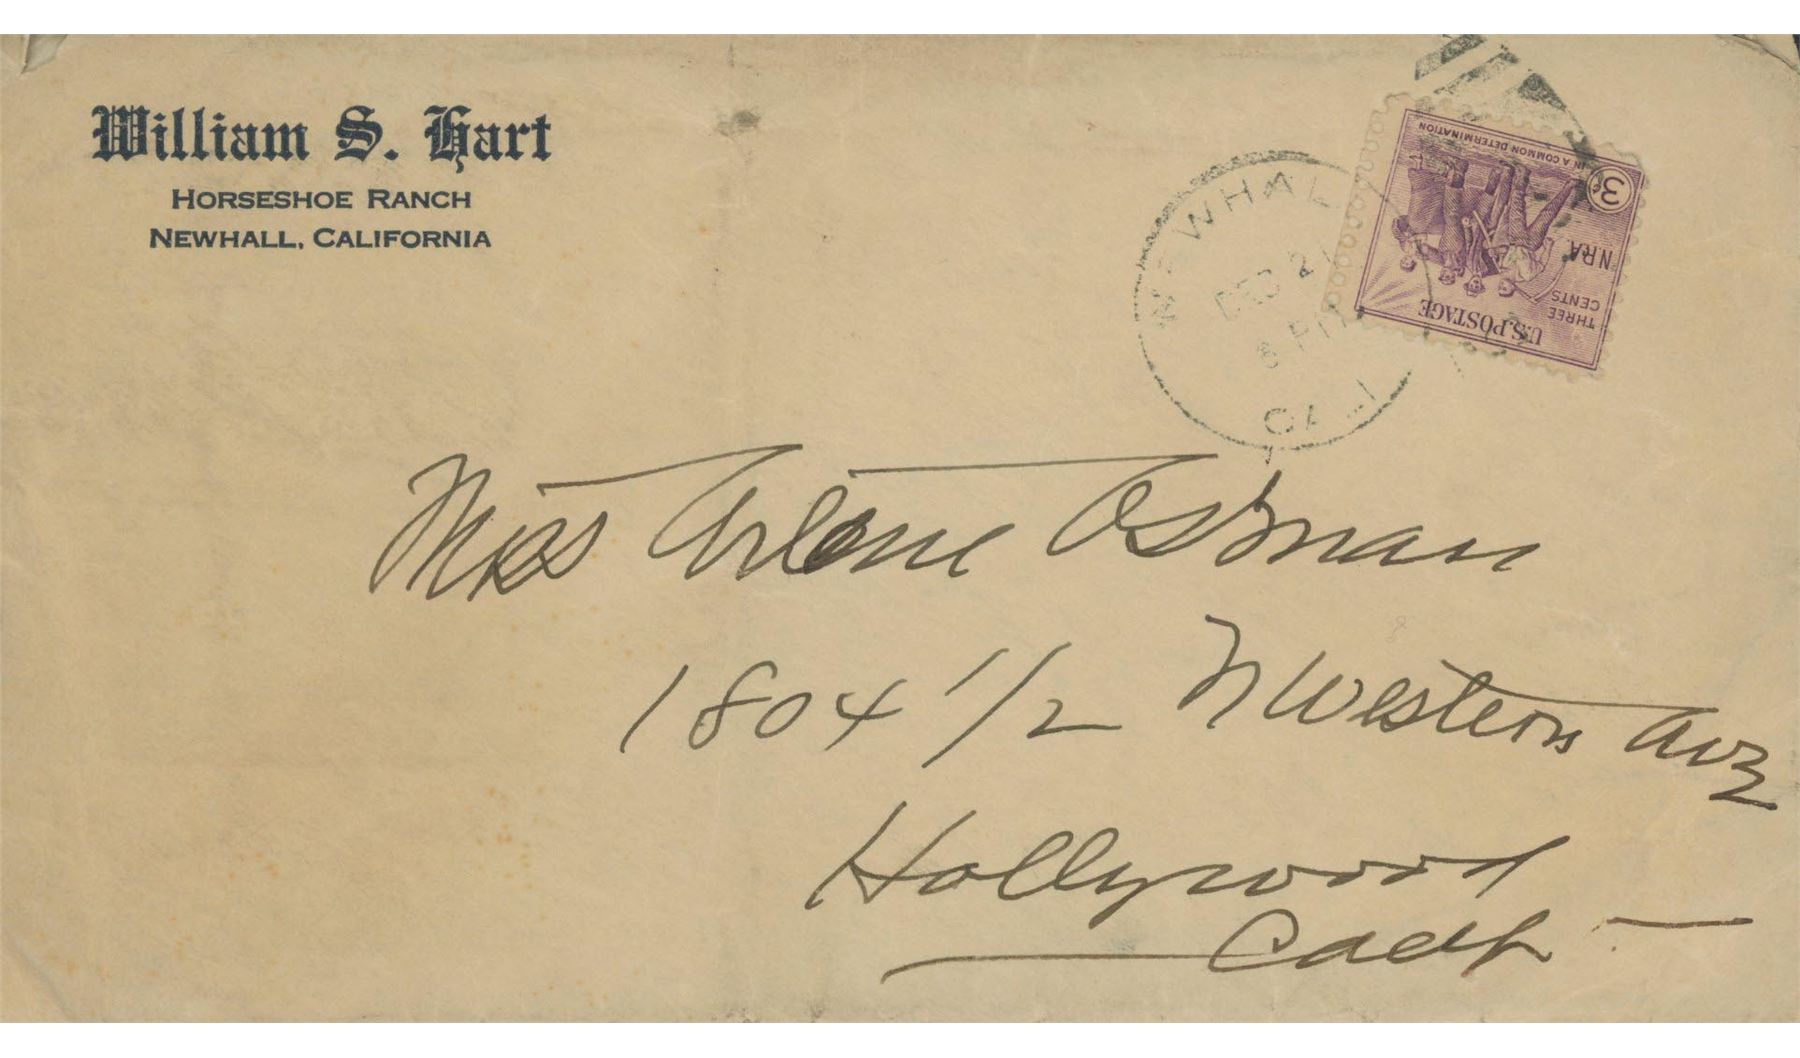 William S. Hart
HORSESHOE RANCH
NEWHALL, CALIFORNIA
NEWHALL
DEC 21
PM
CALI
IN A COMMON DETERMINATION
3¢
N.R.A.
THREE
CENTS
U.S. POSTAGE
Miss Arlene Osman
1804 1/2 N Western Ave
Hollywood
Calif